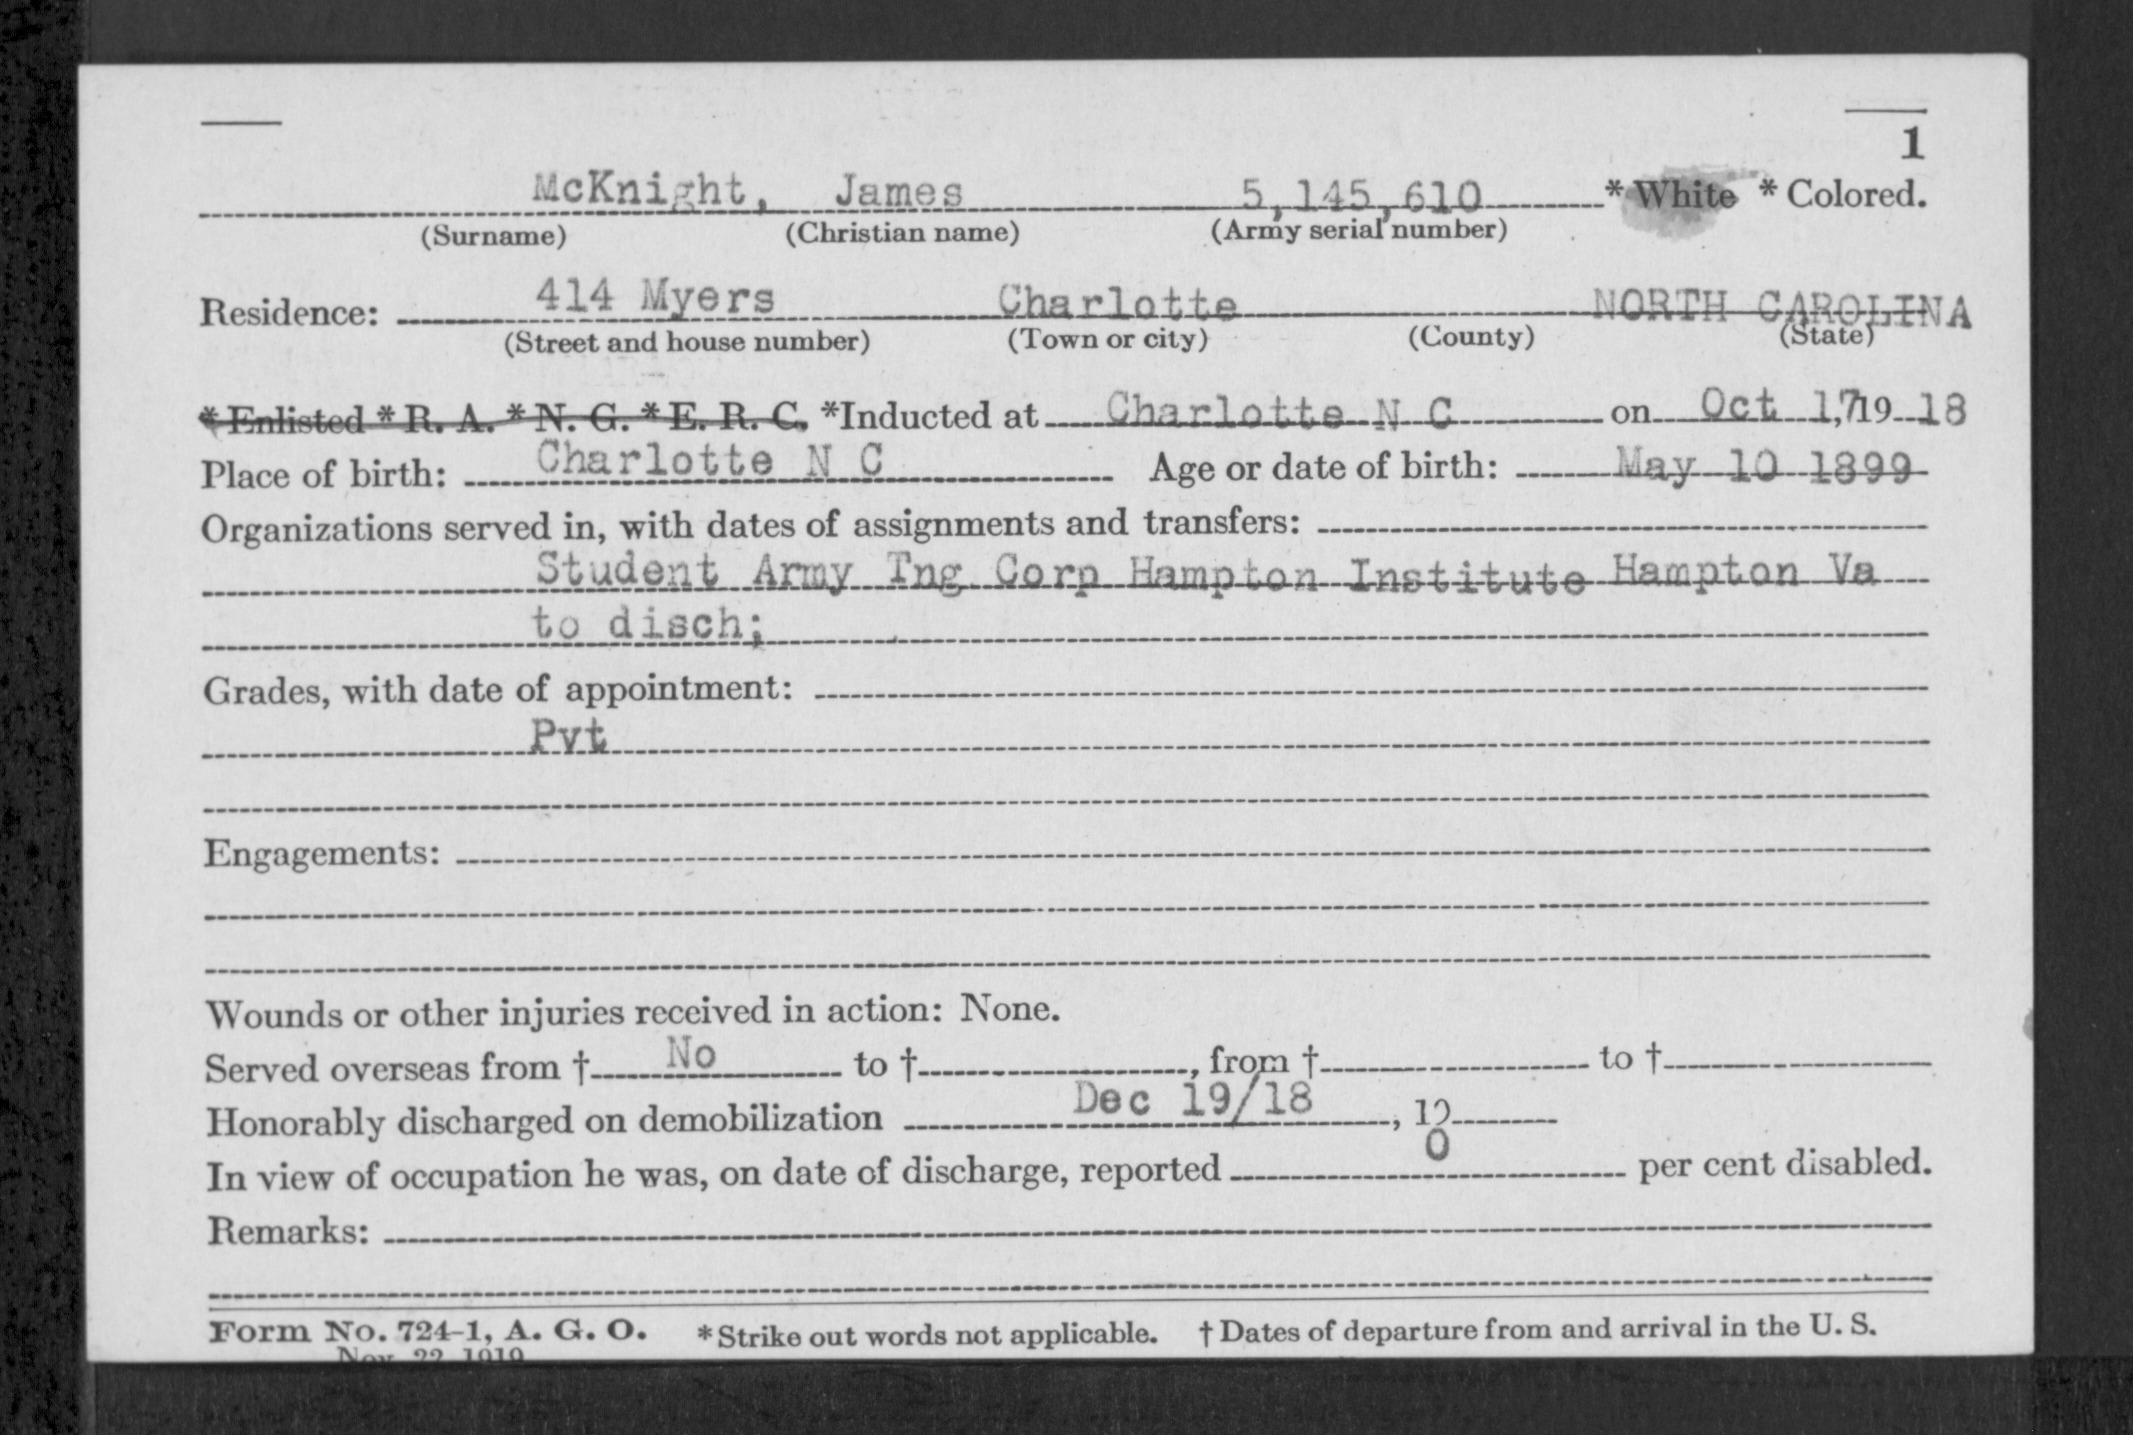 1
McKnight, James 5,145,610 * White * Colored.
(Surname) (Christian name) (Army serial number)
Residence: 414 Myers Charlotte NORTH CAROLINA
(Street and house number) (Town or city) (County) (State)
* Enlisted * R. A. * N. G. * E. R. C. *Inducted at Charlotte N C on Oct 17, 19 18
Place of birth: Charlotte N C Age or date of birth: May 10 1899
Organizations served in, with dates of assignments and transfers:
Student Army Tng Corp Hampton Institute Hampton Va
to disch;
Grades, with date of appointment:
Pvt
Engagements:
Wounds or other injuries received in action: None.
Served overseas from † No to † , from † to †
Honorably discharged on demobilization Dec 19/18 , 19
In view of occupation he was, on date of discharge, reported 0 per cent disabled.
Remarks:
Form No. 724-1, A. G. O. * Strike out words not applicable. † Dates of departure from and arrival in the U. S.
Nov. 22, 1919